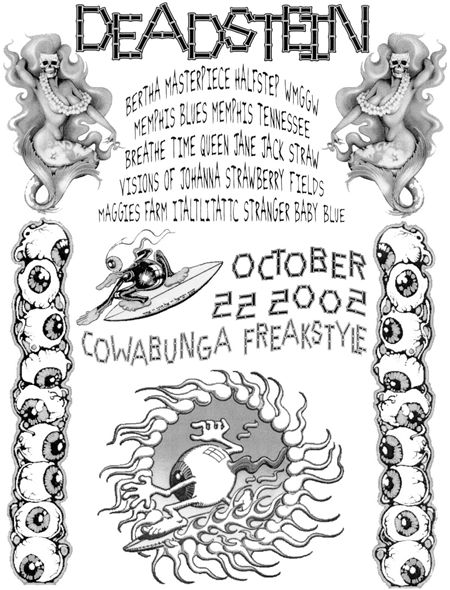 DEADSTEIN
BERTHA MASTERPIECE HALFSTEP WMGGW
MEMPHIS BLUES MEMPHIS TENNESSEE
BREATHE TIME QUEEN JANE JACK STRAW
VISIONS OF JOHANNA STRAWBERRY FIELDS
MAGGIES FARM ITALTLITATTC STRANGER BABY BLUE
OCTOBER
22 2002
COWABUNGA FREAKSTYLE